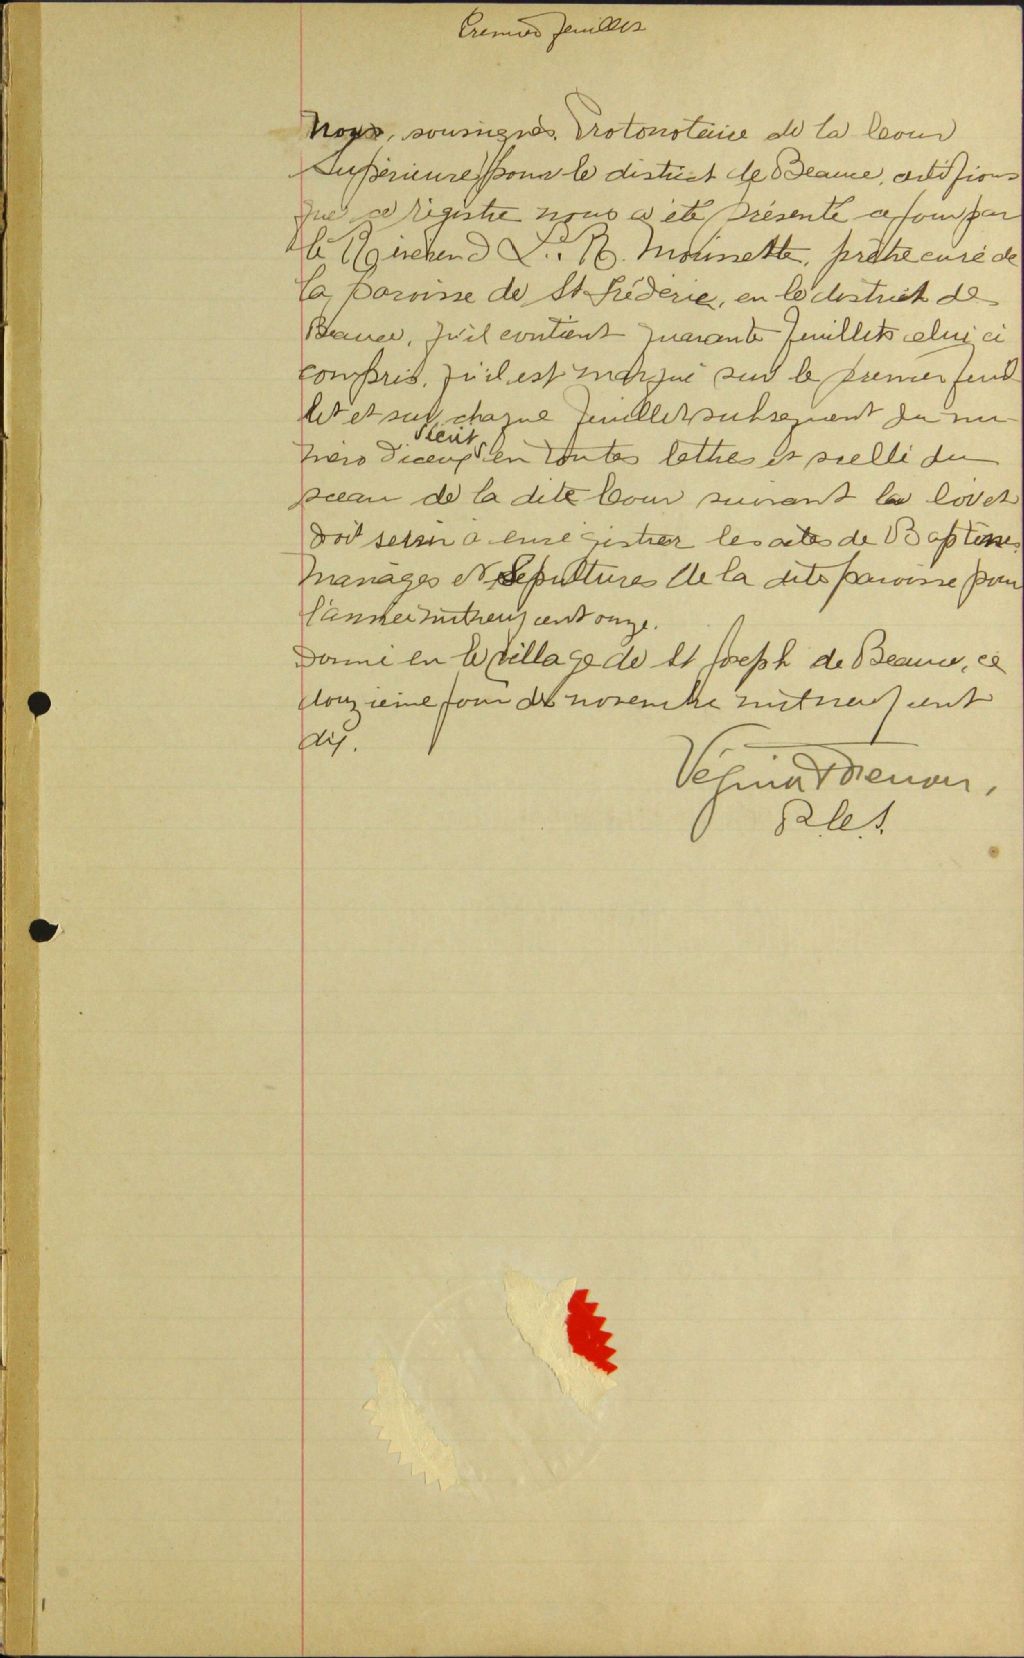 Premier feuillet
Nous, soussignés, Protonotaire de la Cour
Supérieure pour le district de Beauce, certifions
que ce régistre nous a été présenté ce jour par
le Révérend L. R. prêtre curé de
la paroisse de St Fréderic, en le district de
Beauce, qu'il contient quarante feuillets celui ci
compris, qu'il est marqué sur le premier feuil
let et sur chaque feuillet subsequent du nu-
méro d'iceux écrit en toutes lettres et scellé du
sceau de la dite Cour suivant la loi et
doit servir à enregistrer les actes de Baptêmes
Mariages et Sépultures de la dite paroisse pour
l'année mil neuf cent onze.
Donné en le village de St Joseph de Beauce, ce
douzième jour de novembre mil neuf cent
dix.
Vézina &
P.C.S.